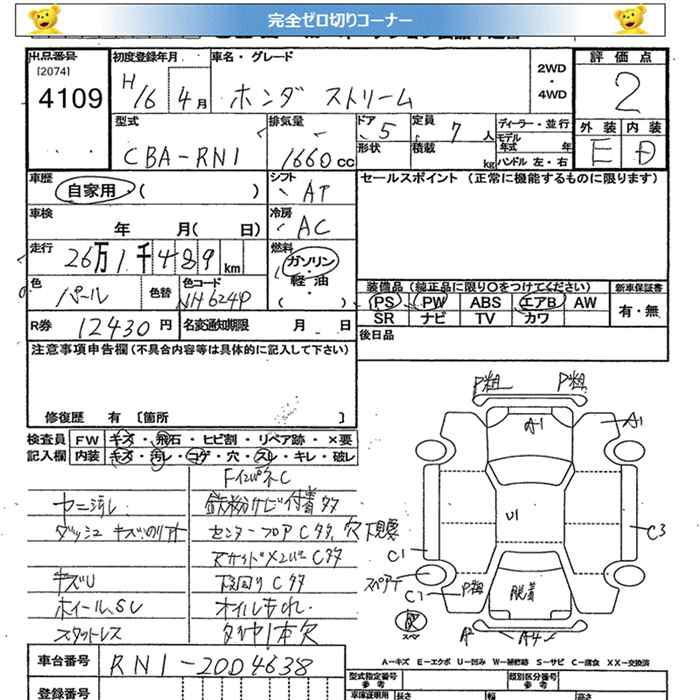 完全ゼロ切りコーナー
出品番号
[2074]
4109
初度登録年月
H16 4月
車名・グレード
ホンダ ストリーム
2WD
・
4WD
評価点
2
外装 内装
E D
型式
CBA-RN1
排気量
1660cc
ドア
5
形状
定員
7人
積載
kg
ディーラー・並行
モデル
年式 年
ハンドル 左・右
車歴
自家用 ( )
シフト
AT
セールスポイント (正常に機能するものに限ります)
車検
年 月( 日)
冷房
AC
走行
26万1千489km
燃料
ガソリン
軽・油
( )
色
パール
色替
色コード
NH624P
装備品 (純正品に限り○をつけてください)
PS PW ABS エアB AW
SR ナビ TV カワ
新車保証書
有・無
R券
12430円
名変通知期限 月 日
後日品
注意事項申告欄 (不具合内容等は具体的に記入して下さい)
修復歴 有 [箇所 ]
検査員
記入欄
FW キズ・飛石・ヒビ割・リペア跡・×要
内装 キズ・汚レ・コゲ・穴・スレ・キレ・破レ
ヤニ汚レ
鉄粉サビ付着多々
センターフロアC多
下廻りC多
キズU
ホイールSU
オイルもれ
スタットレス
タイヤ1本欠
P粗 P粗
A1
A1
U1
C3
C1
スペアナ
C1
P粗
脱着
欠
スペ
A
A4
A-キズ E-エクボ U-凹み W-補修跡 S-サビ C-腐食 XX-交換済
車台番号
RN1-2004638
登録番号
型式指定番号
参考
類別区分番号
参考
車庫証明用
長さ
幅
高さ